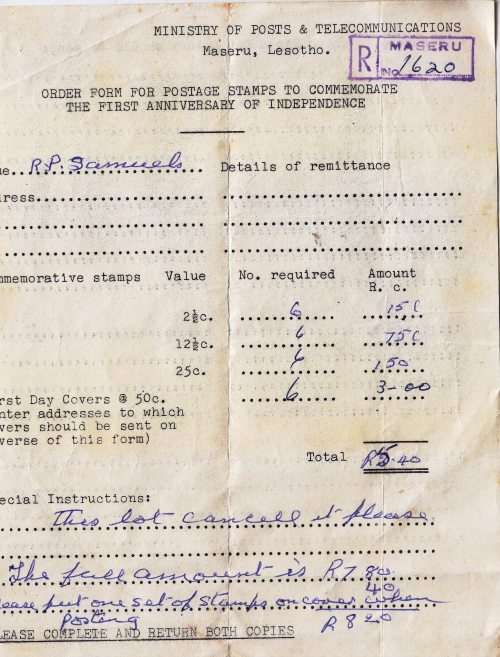 MINISTRY OF POSTS & TELECOMMUNICATIONS
Maseru, Lesotho.
R MASERU
No 1620
ORDER FORM FOR POSTAGE STAMPS TO COMMEMORATE
THE FIRST ANNIVERSARY OF INDEPENDENCE
me.. R.P. Samuels Details of remittance
dress
mmemorative stamps Value No. required Amount
R. c.
2½c. 6 15c
12½c. 6 75c
25c. 6 1.50
6 3-00
rst Day Covers @ 50c.
nter addresses to which
vers should be sent on
verse of this form)
Total R5.40
ecial Instructions:
This lot cancell it please
The full amount is R7.80
40
lease put one set of stamps on cover when
Posting R 8 20
LEASE COMPLETE AND RETURN BOTH COPIES